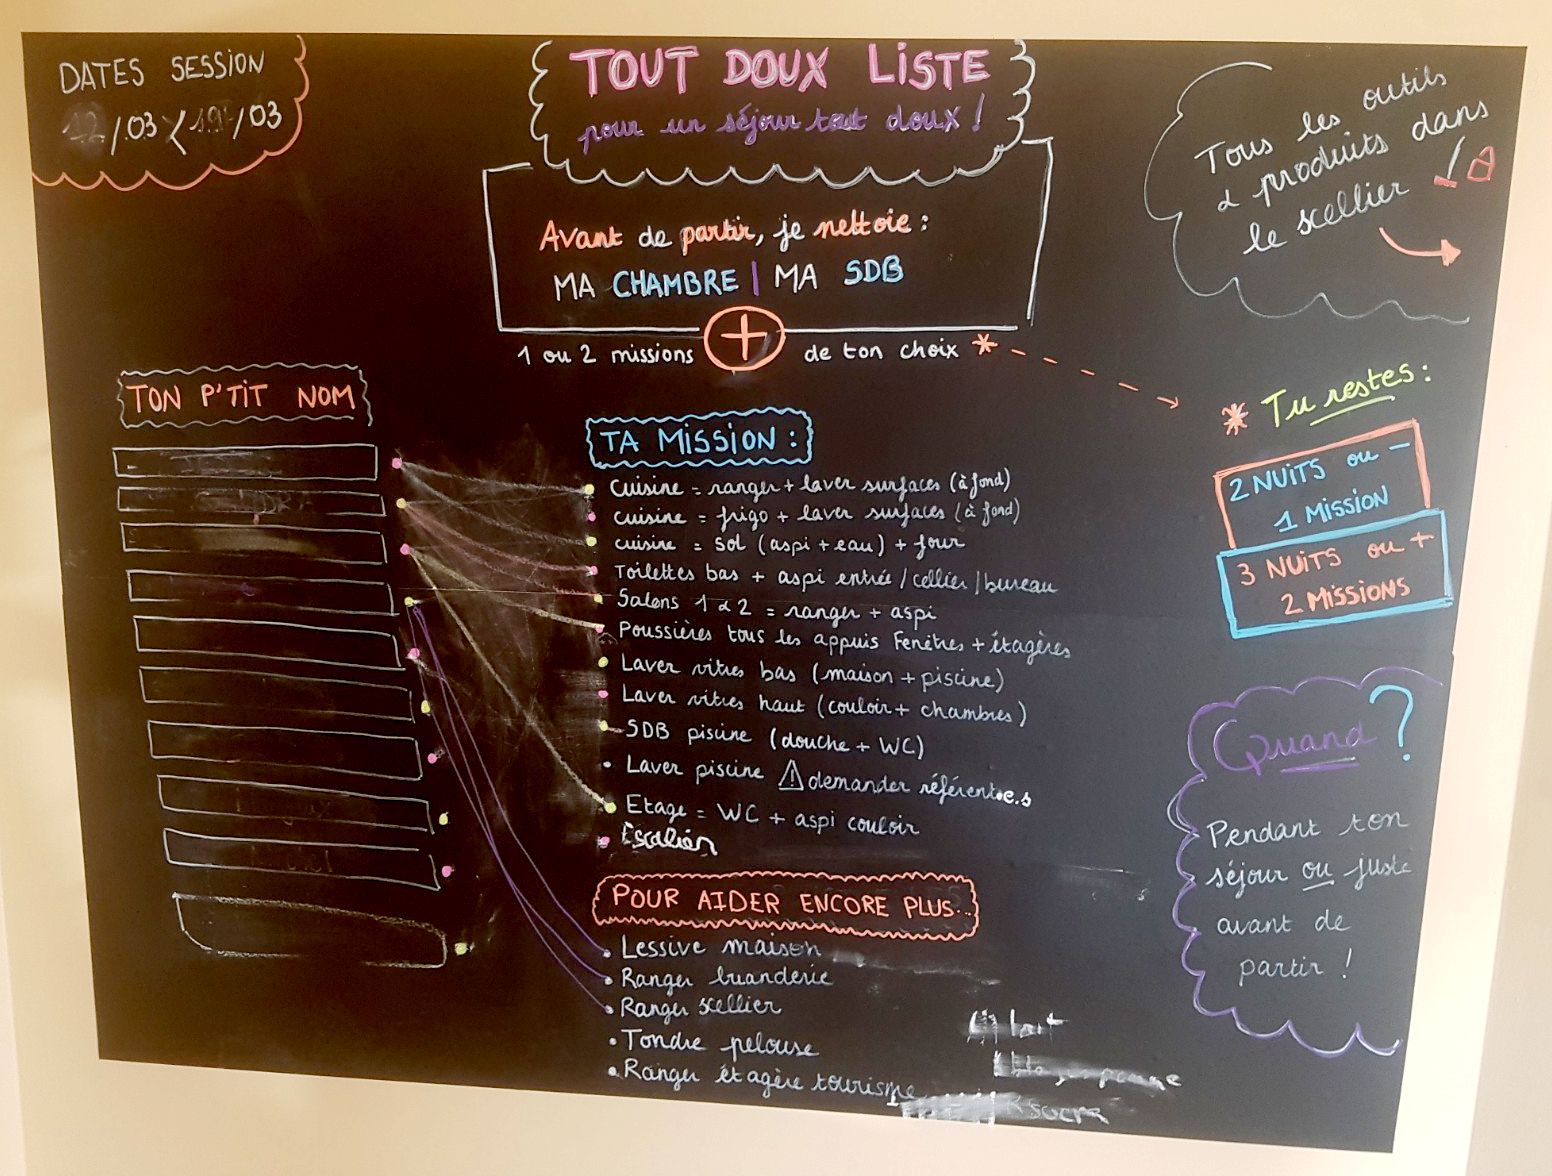 DATES SESSION
12/.03 < 19/03
TOUT DOUX LiSTE
pour un séjour tout doux !
Tous les outils
& produits dans
le scellier
Avant de partir, je nettoie :
MA CHAMBRE | MA SDB
+
1 ou 2 missions de ton choix *
* Tu restes :
2 NUiTS ou -
1 MiSSiON
3 NUiTS ou +
2 MiSSiONS
TON P'TiT NOM
TA MiSSiON :
Cuisine = ranger + laver surfaces (à fond)
cuisine = frigo + laver surfaces (à fond)
cuisine = sol (aspi + eau) + four
Toilettes bas + aspi entrée / cellier / bureau
Salons 1 & 2 = ranger + aspi
Poussières tous les appuis Fenêtres + étagères
Laver vitres bas (maison + piscine)
Laver vitres haut (couloir + chambres)
SDB piscine (douche + WC)
Laver piscine ⚠ demander référent.e.s
Etage = WC + aspi couloir
Escalier
POUR AIDER ENCORE PLUS...
Lessive maison
Ranger buanderie
Ranger scellier
Tondre pelouse
Ranger étagère tourisme
lait
sucre
Quand ?
Pendant ton
séjour ou juste
avant de
partir !